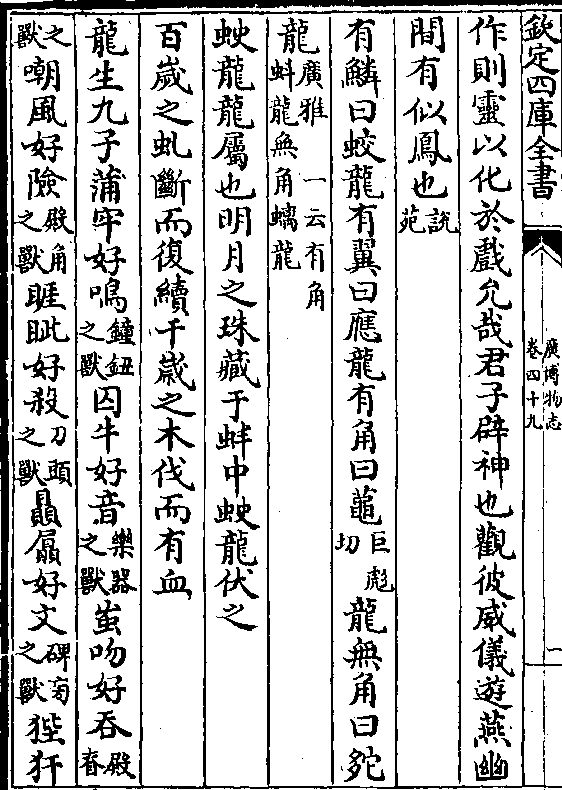 欽定四庫全書
廣博物志
卷四十九
一
作則靈以化於戲允哉君子辟神也觀彼威儀遊燕幽
間有似鳳也說苑
有鱗曰蛟龍有翼曰應龍有角曰𪚰巨彪切龍無角曰䖤
龍廣雅 一云有角蚪龍無角螭龍
蛟龍龍屬也明月之珠藏于蚌中蛟龍伏之
百歲之虬斷而復續千歲之木伐而有血
龍生九子蒲牢好鳴鐘鈕之獸囚牛好音樂器之獸蚩吻好吞殿脊
之獸嘲風好險殿角之獸睚眦好殺刀頭之獸贔屭好文碑旁之獸狴犴